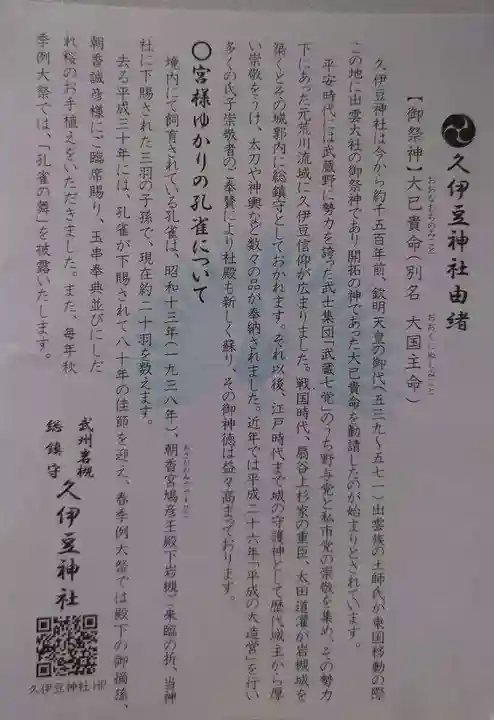 久伊豆神社由緒
【御祭神】大己貴命(別名 大国主命)
おおなむちのみこと おおくにぬしのみこと
久伊豆神社は今から約千五百年前、欽明天皇の御代(五三九〜五七一)出雲族の土師氏が東国移動の際
この地に出雲大社の御祭神であり開拓の神であった大己貴命を勧請したのが始まりとされています。
平安時代には武蔵野に勢力を誇った武士集団「武蔵七党」のうち野与党と私市党の崇敬を集め、その勢力
下にあった元荒川流域に久伊豆信仰が広まりました。戦国時代、扇谷上杉家の重臣、太田道灌が岩槻城を
築くとその城郭内に総鎮守としておかれます。それ以後、江戸時代まで城の守護神として歴代城主から厚
い崇敬をうけ、太刀や神輿など数々の品が奉納されました。近年では平成二十六年「平成の大造営」を行い
多くの氏子崇敬者のご奉賛により社殿も新しく蘇り、その御神徳は益々高まっております。
〇宮様ゆかりの孔雀について
境内にて飼育されている孔雀は、昭和十三年(一九三八年)、朝香宮鳩彦王殿下岩槻ご来臨の折、当神
社に下賜された三羽の子孫で、現在約二十羽を数えます。
去る平成三十年には、孔雀が下賜されて八十年の佳節を迎え、春季例大祭では殿下の御嫡孫、
朝香誠彦様にご臨席賜り、玉串奉奠並びにしだ
れ桜のお手植えをいただきました。また、毎年秋
季例大祭では、「孔雀の舞」を披露いたします。
武州岩槻
総鎮守
久伊豆神社
久伊豆神社HP